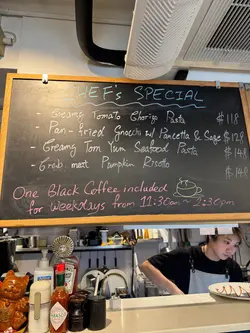 CHEF's SPECIAL
- Creamy Tomato Chorizo Pasta $118
- Pan-fried Gnocchi w/ Pancetta & Sage $128
- Creamy Tom Yum Seafood Pasta $148
- Crab meat Pumpkin Risotto $148
One Black Coffee included
for Weekdays from 11:30am ~ 2:30pm